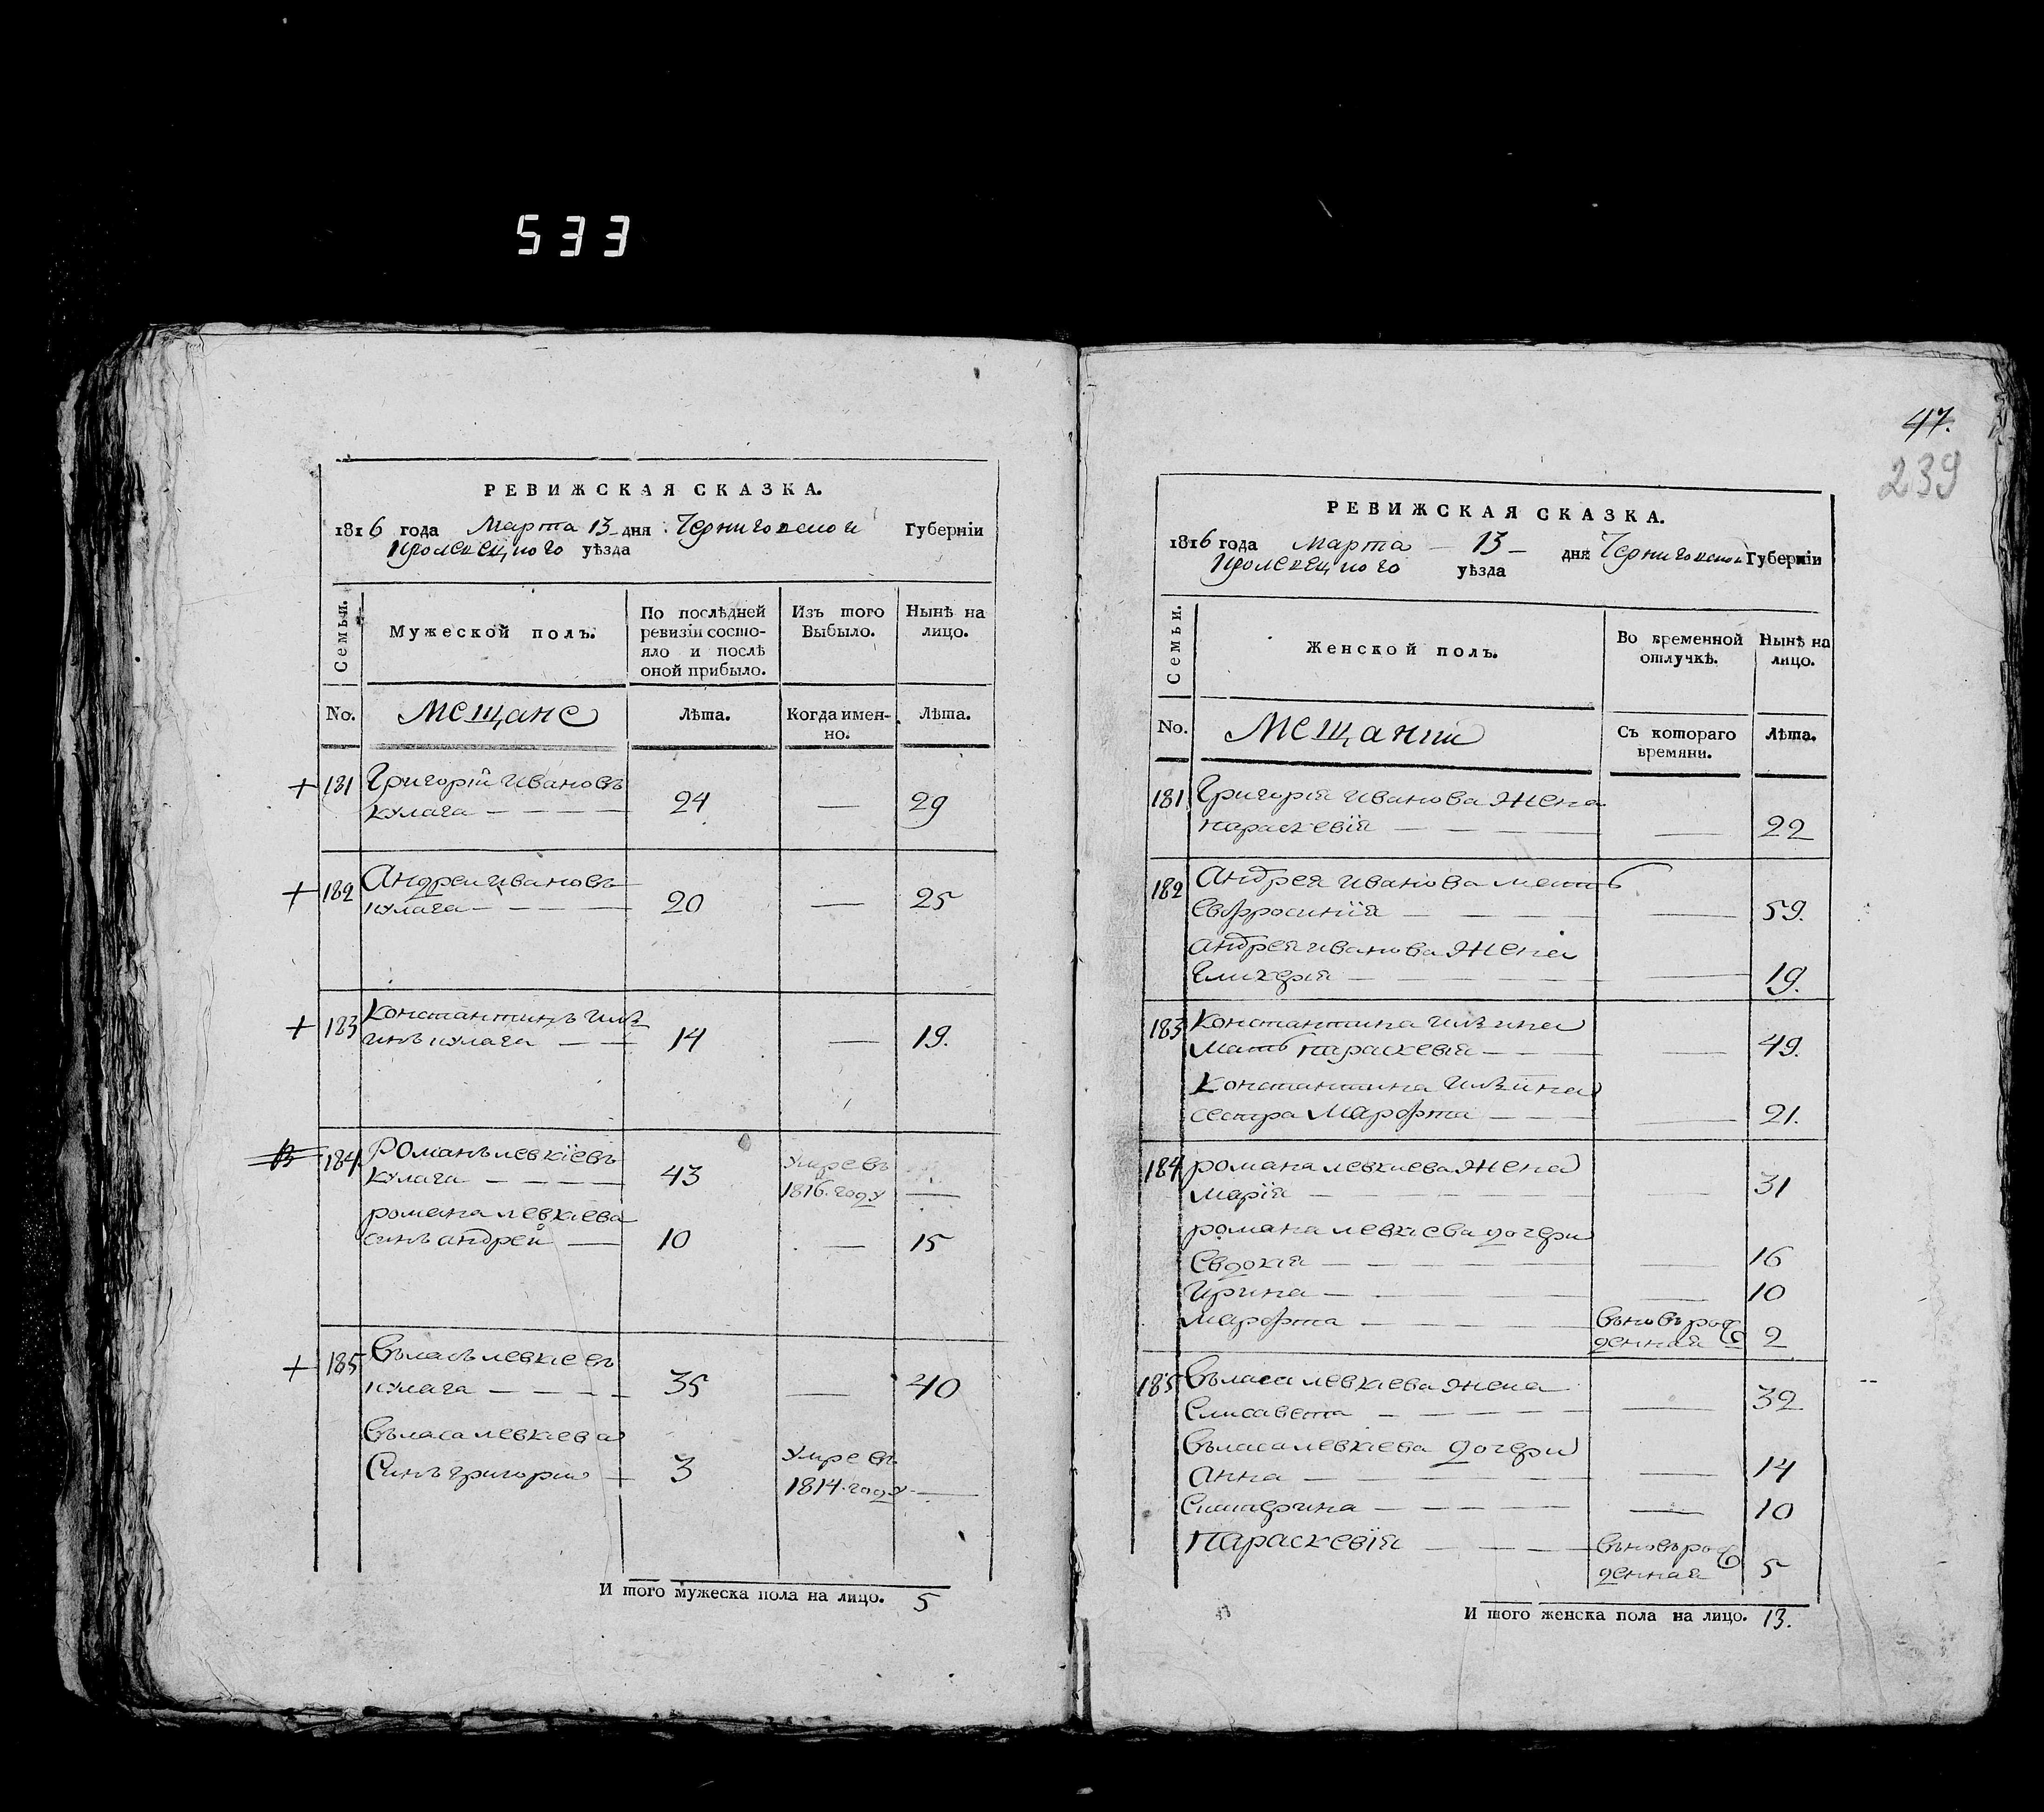 533
РЕВИЖСКАЯ СКАЗКА.
1816 года Марта 13 дня Черниговской Губерніи
Кролевецкого уѣзда
Семьи.
Мужеской полъ.
По послѣдней ревизіи состо-
яло и послѣ
оной прибыло.
Изъ того
Выбыло.
Нынѣ на
лицо.
No.
Мещане
Лѣта.
Когда имен-
но.
Лѣта.
+ 181 Григорій Ивановъ
кулага — — — 24 — 29
+ 182 Андрей Ивановъ
кулага — — — 20 — 25
+ 183 Константинъ Илѣ
инъ кулага — — 14 — 19.
184 Романъ левкіевъ
кулага — — — 43 Умре въ
1816. году —
романа левкіева
синъ андрей — 10 — 15
+ 185 Власъ левкіевъ
кулага — — — 35 — 40
Власа левкіева
Синъ григорій — 3 Умре въ
1814. году —
И того мужеска пола на лицо. 5
47.
239
РЕВИЖСКАЯ СКАЗКА.
1816 года Марта — 13 — дня Черниговской Губерніи
Кролевецкого уѣзда
Семьи.
Женской полъ.
Во временной
отлучкѣ.
Нынѣ на
лицо.
No.
Мещанки
Съ котораго
времяни.
Лѣта.
181 Григорія Иванова Жена
параскевія — — — 22
182 Андрея Иванова мать
Евфросинія — — — 59.
андрея иванова Жена
Гликерія — — — 19.
183 Константина Илѣина
Мать параскевія — — 49.
Константина Илѣина
сестра Марфта — — 21.
184 романа левкиева Жена
Марія — — — 31
романа левкіева дочери
Евдокія — — — 16
Ирина — — — 10
Марфта — — — вьновьрож
денная 2
185 Власа левкіева жена
Елисавета — — — 32
Власа левкіева дочери
Анна — — — 14
Екатерина — — — 10
Параскевія — — — вьновьрож
денная 5
И того женска пола на лицо. 13.